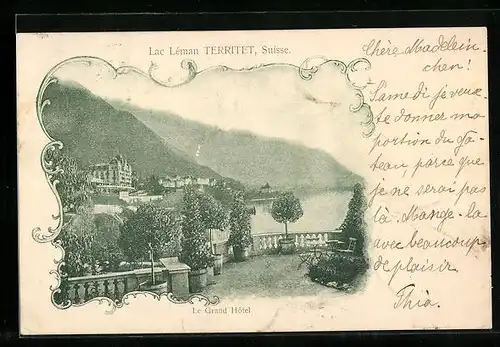 Lac Léman TERRITET, Suisse.
Chère Madelein-
chen!
Samedi je veux
te donner ma
portion du gâ-
teau, parce que
je ne serai pas
là. Mange-la
avec beaucoup
de plaisir.
Thia.
Le Grand Hôtel